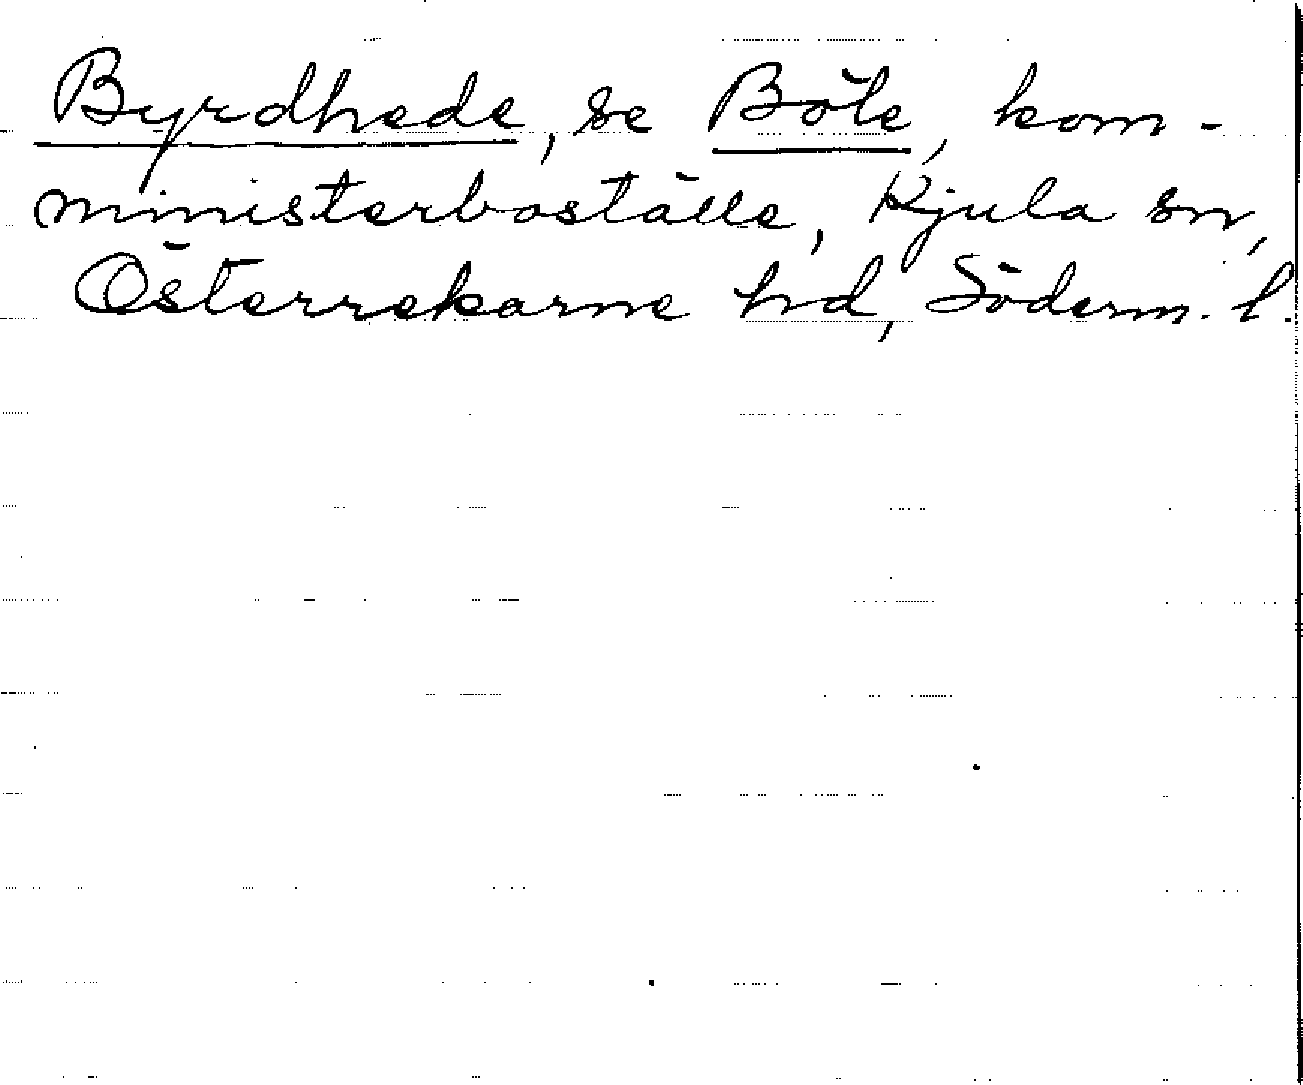 Byrdhede, se Böle, kom-
ministerboställe, Kjula sn,
Österrekarne hd, Söderm. l.